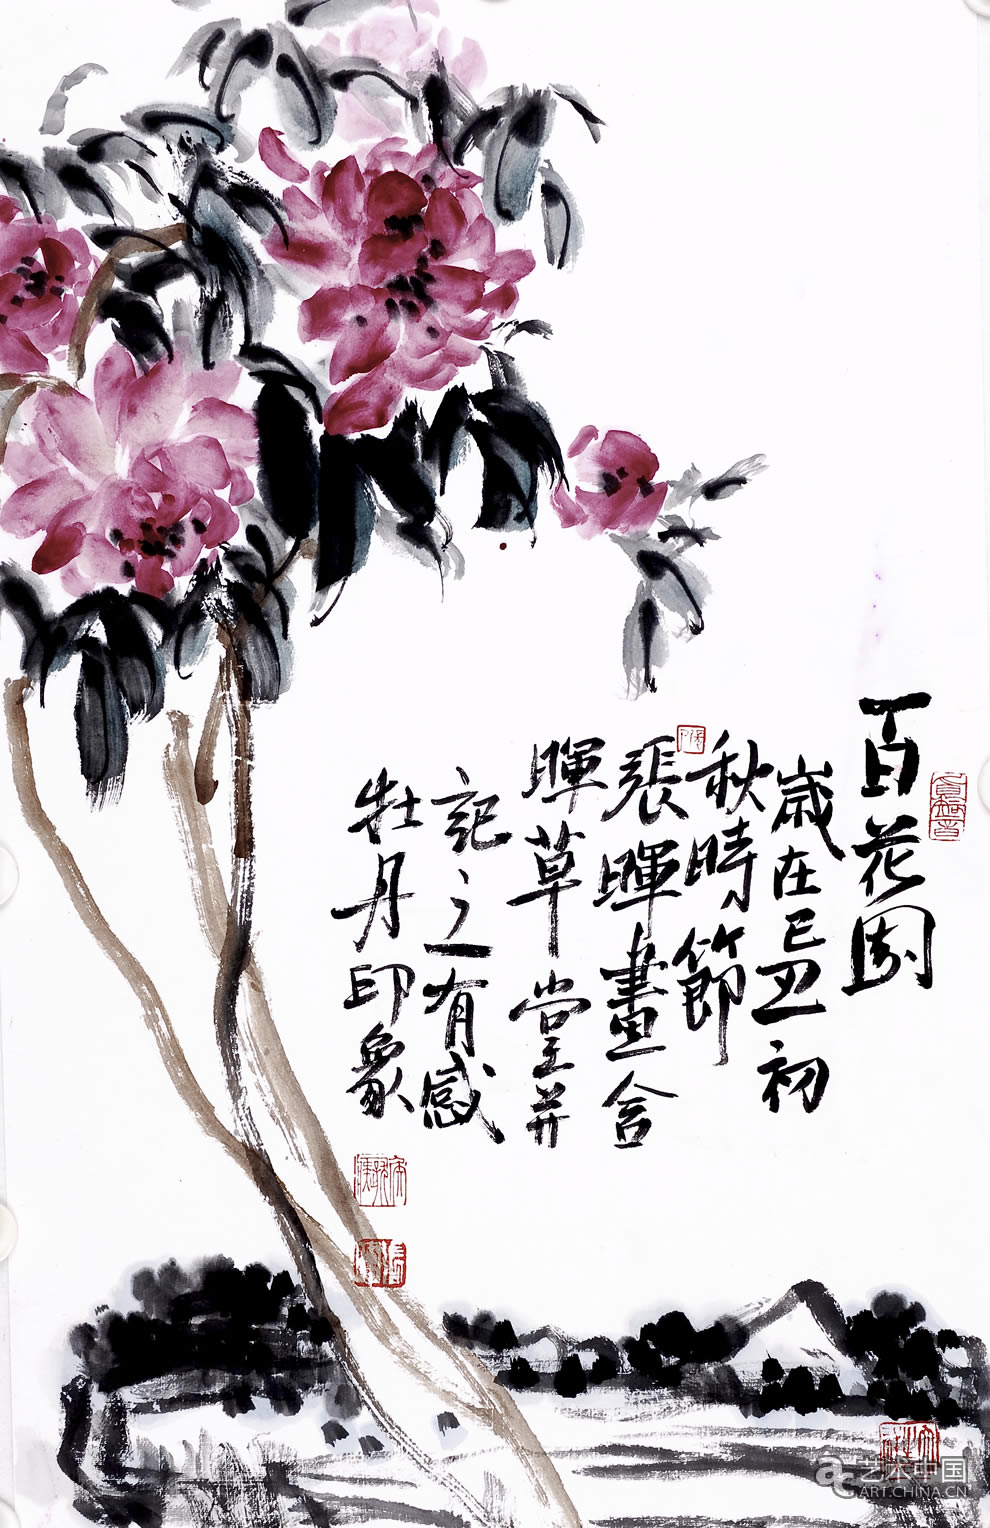 百花園
歲在己丑初
秋時節
張暉畫於
暉草堂並
記之有感
牡丹印象
艺术中国
ART.CHINA.CN